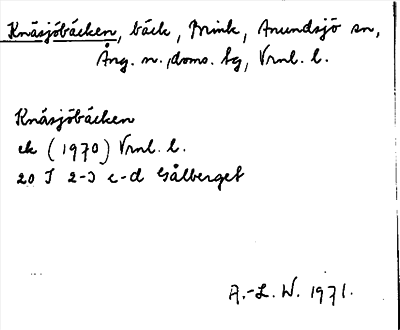 Knåsjöbäcken, bäck, Brink, Anundsjö sn,
Ång. n., doms. bg, Vrnl. l.
Knåsjöbäcken
ek (1970) Vrnl. l.
20 J 2-3 c-d Gålberget
A.-L. W. 1971.